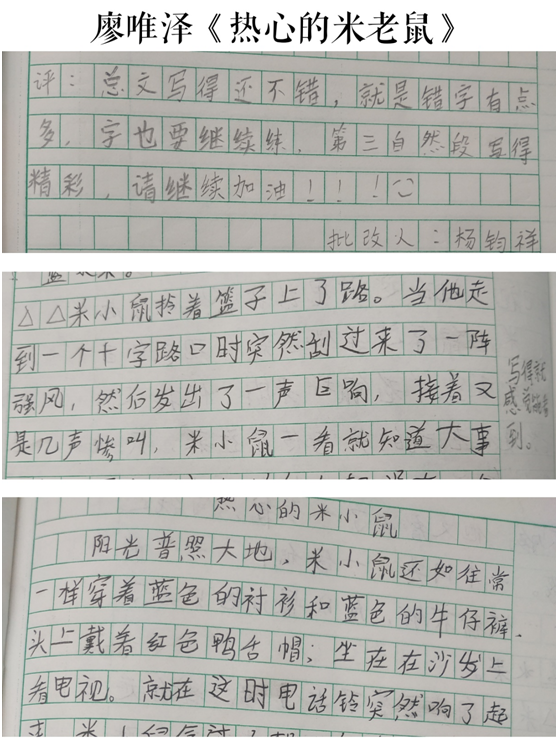 廖唯泽《热心的米老鼠》
评：总文写得还不错，就是错字有点
多，字也要继续练，第三自然段写得
精彩，请继续加油！！！
批改人：杨钧祥
△△米小鼠拎着篮子上了路。当他走
到一个十字路口时突然刮过来了一阵
强风，然后发出了一声巨响，接着又
是几声惨叫，米小鼠一看就知道大事
写得就
感
到。
热心的米小鼠
阳光普照大地，米小鼠还如往常
一样穿着蓝色的衬衫和蓝色的牛仔裤，
头上戴着红色鸭舌帽；坐在在沙发上
看电视。就在这时电话铃突然响了起